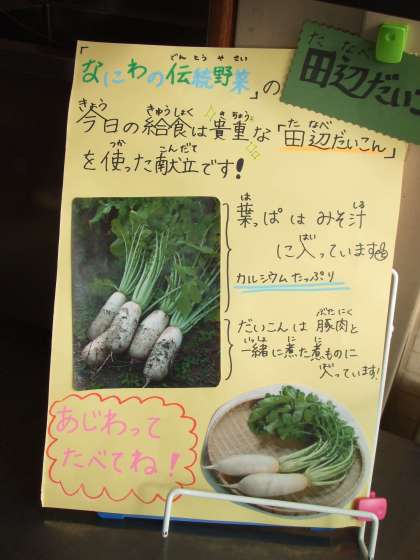 「なにわの伝統野菜」の
でんとうやさい
田辺だいこ
たなべ
今日の給食は貴重な「田辺だいこん」
きょう きゅうしょく きちょう たなべ
を使った献立です!
つか こんだて
葉っぱはみそ汁
は しる
に入っています
はい
カルシウムたっぷり
だいこんは豚肉と
ぶたにく
一緒に煮た煮ものに
いっしょ に に
入っています!
はい
あじわって
たべてね!